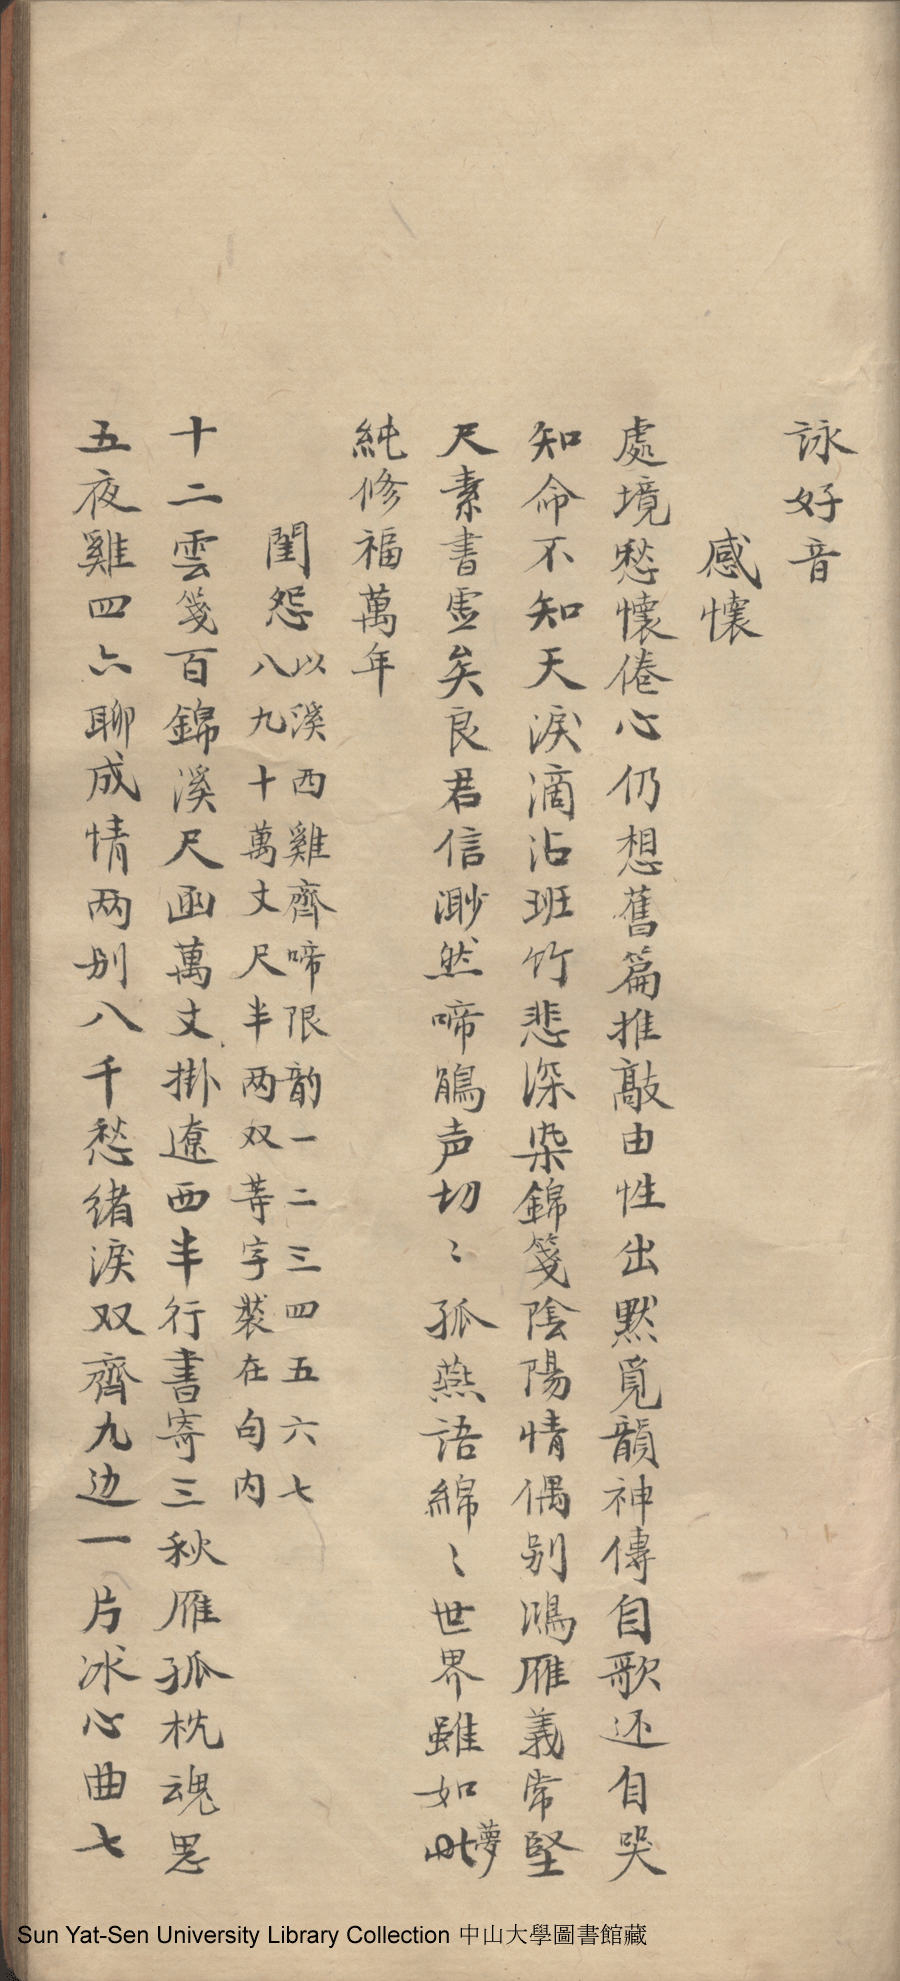 詠好音
感懷
處境愁懷倦心仍想舊篇推敲由性出默覓韻神傳自歌还自哭
知命不知天淚滴沾班竹悲深染錦箋陰陽情偶别鴻雁義常堅
尺素書虛矣良君信渺然啼鵑声切〻孤燕語綿〻世界雖如此夢
純修福萬年
閨怨以溪西雞齊啼限韵一二三四五六七
八九十萬丈尺半两双等字裝在句内
十二雲箋百錦溪尺函萬丈掛遼西半行書寄三秋雁孤枕魂思
五夜雞四六聊成情两别八千愁緒淚双齊九边一片冰心曲七
Sun Yat-Sen University Library Collection 中山大學圖書館藏